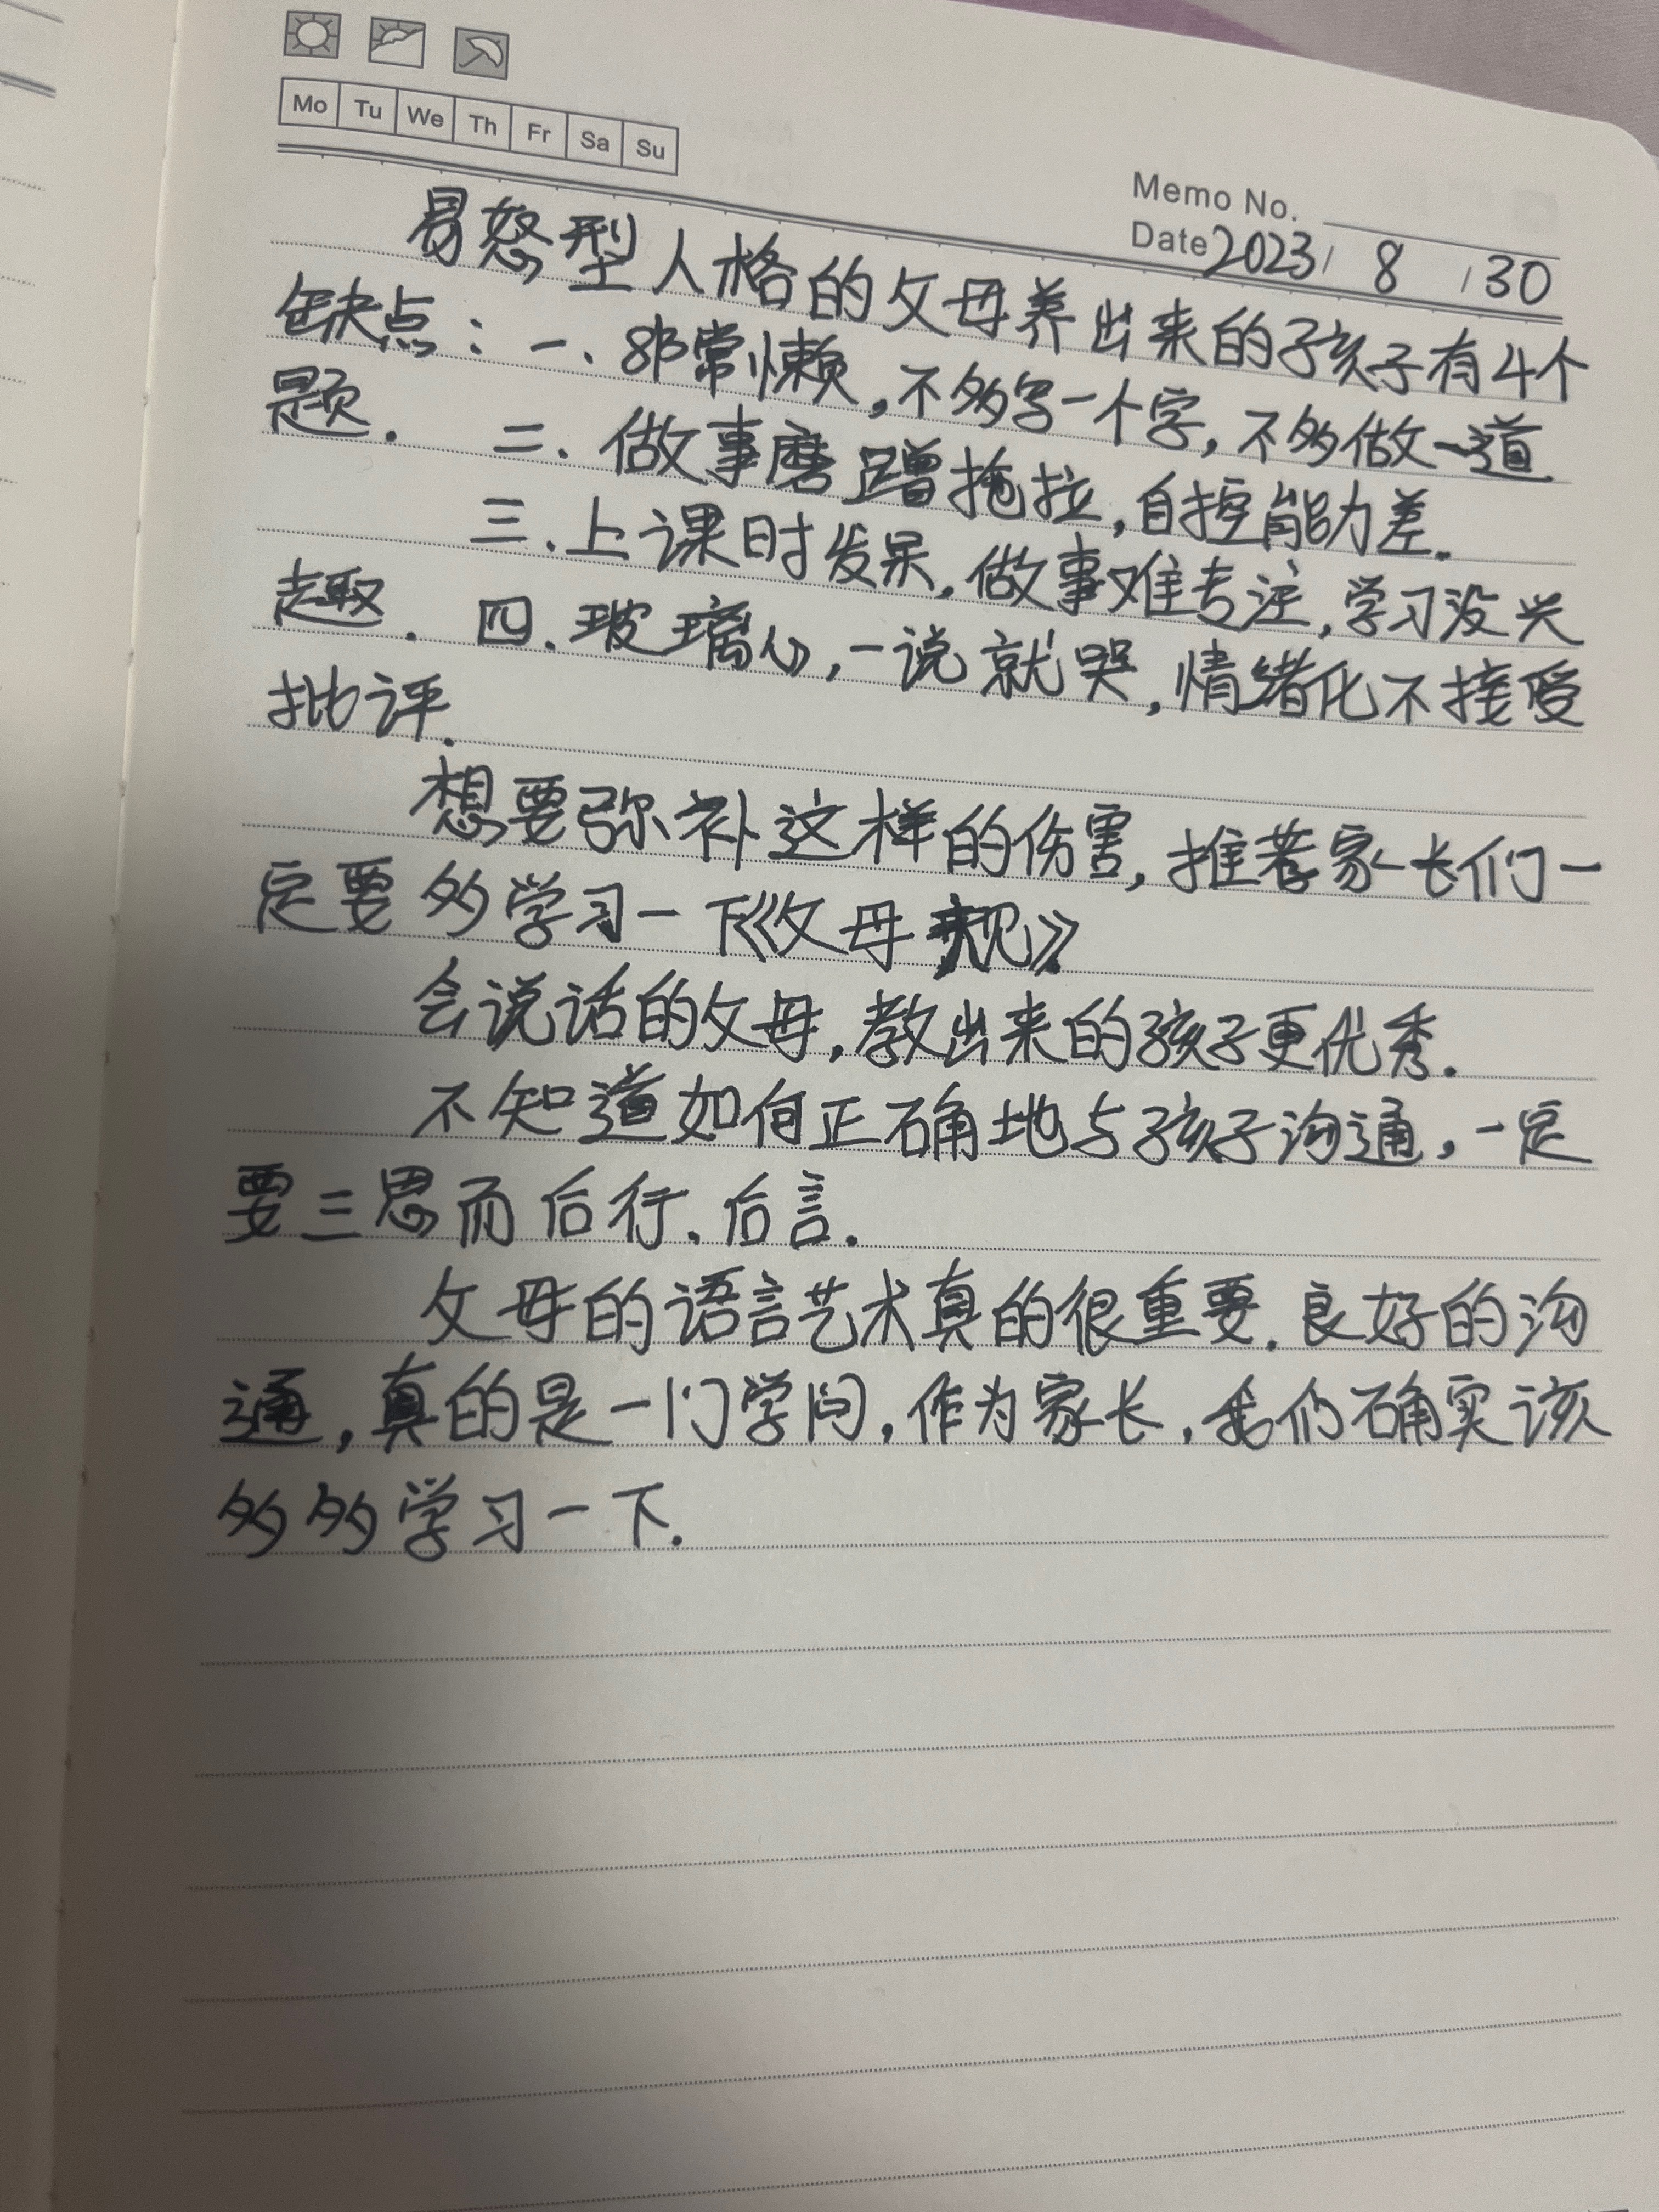 Mo Tu We Th Fr Sa Su
Memo No.
Date 2023 / 8 / 30
易怒型人格的父母养出来的孩子有4个
缺点：一、非常懒，不多写一个字，不多做一道
题. 二. 做事磨蹭拖拉，自控能力差.
三. 上课时发呆，做事难专注，学习没兴
趣. 四. 玻璃心，一说就哭，情绪化不接受
批评.
想要弥补这样的伤害，推荐家长们一
定要多学习一下《父母规》
会说话的父母，教出来的孩子更优秀.
不知道如何正确地与孩子沟通，一定
要三思而后行、后言.
父母的语言艺术真的很重要. 良好的沟
通，真的是一门学问，作为家长，我们确实该
多多学习一下.